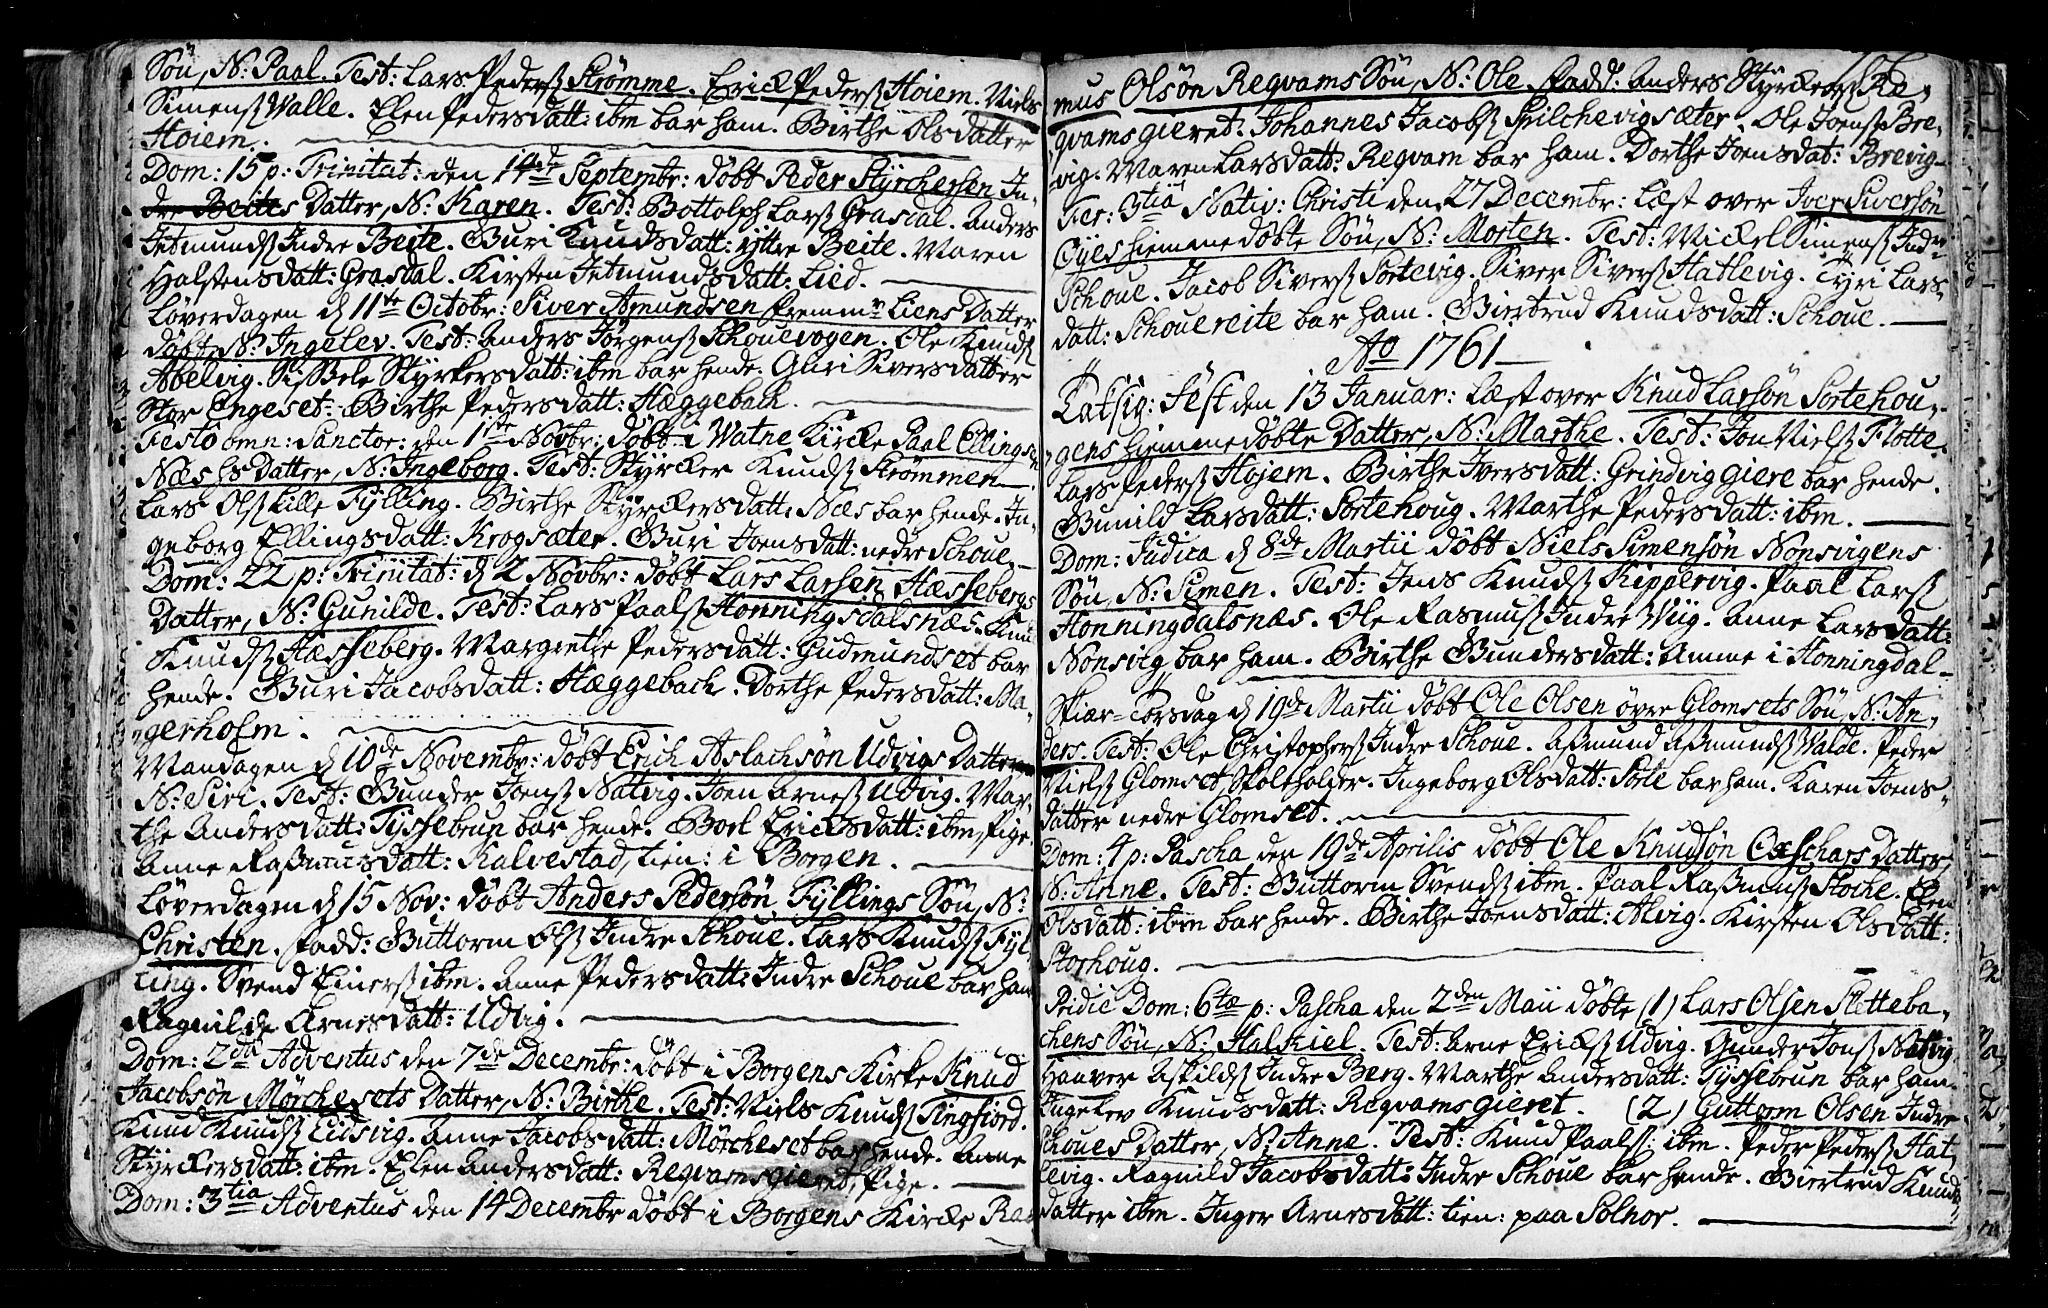 Søn, N: Paal. Test: Lars Peders: Strømme. Erick Peders: Hoiem. Niels
Simens: Walle. Elen Pedersdatt: ibm bar ham. Birthe Olsdatter
Hoiem.
Dom: 15 p: Trinitat: den 14de Septembr: døbt Peder Styrchersen In-
dre Beites Datter, N: Karen. Test: Bottolph Lars: Grasdal. Anders
Jetmunds: Indre Beite. Guri Knudsdatt: yttre Beite. Maren
Halstensdatt: Grasdal. Kirsten Jetmundsdatt: Lied.
Løverdagen d 11te Octobr: Siver Amundsen fremm Liens Datter
døbt, N: Ingelev. Test: Anders Jørgens: Schouevogen. Ole Knuds:
Abelvig. Sissele Styrkersdatt: ibm bar hende. Guri Siversdatter
Stor Engeset. Birthe Pedersdatt: Hæggebach.
Festo omn: Sanctor: den 1ste Novbr: døbt i Watne Kircke Paal Ellingsen
Næs hs Datter, N: Ingeborg. Test: Styrcker Knuds: Strømmen
Lars Ols: Lille Fylling. Birthe Styrckersdatt: Næs bar hende. In-
geborg Ellingsdatt: Krogsæter. Guri Joensdatt: nedre Schoue.
Dom: 22 p: Trinitat: d 2 Novbr: døbt Lars Larsen Hæssebergs
Datter, N: Gunilde. Test: Lars Paals: Honningsdalsnæs. Knud
Knuds: Hæsseberg. Margrethe Pedersdatt: Gudmundset bar
hende. Guri Jacobsdatt: Hæggebach. Dorthe Pedersdatt: Ma-
gerholm.
Mandagen d 10de Novembr: døbt Erich Aslachsøn Udvigs Datter
N: Siri. Test: Gunder Joens: Natvig. Joen Arnes: Udvig. Mar-
the Andersdatt: Tyssebrun bar hende. Boel Ericksdatt: ibm, Pige.
Anne Rasmusdatt: Kalvestad, tien: i Borgen.
Løverdagen d 15 Nov: døbt Anders Pedersøn Fyllings Søn, N:
Christen. Fadd: Guttorm Ols: Indre Schoue. Lars Knuds: Fyl-
ling. Svend Einers: ibm. Anne Pedersdatt: Indre Schoue bar ham
Ragnilde Arnesdatt: Udvig.
Dom: 2da Adventus den 7de Decembr: døbt i Borgens Kirke Knud
Jacobsøn Mørchesets Datter, N: Birthe. Test: Niels Knuds: Tingfiord.
Knud Knuds: Eidsvig. Anne Jacobsdatt: Mørcheset bar hende. Anne
Styrckersdatt: ibm. Elen Andersdatt: Reqvamsgieret, Pige.
Dom: 3tia Adventus den 14 Decembr døbt i Borgens Kircke Ras
mus Olsøn Reqvams Søn, N: Ole. Fadd: Anders Styrkers: Re-
qvamsgieret. Johannes Jacobs: Spilchevigsæter. Ole Joens: Bre-
vig. Maren Larsdatt: Reqvam bar ham. Dorthe Joensdat: Brevig
Fer: 3tia Nativ: Christi den 27 Decembr: Læst over Iver Siversøn
Øyes hiemmedøbte Søn, N: Morten. Test: Mickel Simens: Indr
Schoue. Jacob Sivers: Sortevig. Siver Sivers: Hatlevig. Tyri Lars-
datt: Schouereite bar ham. Giertrud Knudsdatt: Schoue.
Ao 1761
Taksig: Fest den 13 Januar: Læst over Knud Larsøn Sortehou-
gens hiemmedøbte Datter, N: Marthe. Test: Jon Niels: Flotte.
Lars Peders: Hojem. Birthe Iversdatt: Grindviggiere bar hende.
Gunild Larsdatt: Sortehoug. Marthe Pedersdatt: ibm.
Dom: Judica d 8de Martii døbt Niels Simensøn Nonsvigens
Søn, N: Simen. Test: Jens Knuds: Kippervig. Paal Lars:
Honningdalsnæs. Ole Rasmus: Indre Wiig. Anne Larsdatt:
Nonsvig bar ham. Birthe Gundersdatt: Amme i Honningdal
Skiær-Torsdag d 19de Martii døbt Ole Olsen øvre Glomsets Søn, N: An-
ders. Test: Ole Christophers: Indre Schoue. Asmund Asmunds: Walde. Peder
Niels: Glomset Skoleholder. Ingeborg Olsdatt: Sorte bar ham. Karen Joens-
datter nedre Glomset.
Dom: 4 p: Pascha den 19de Aprilis døbt Ole Knudsøn Oxschars Datter,
N: Anne. Test: Guttorm Svends: ibm. Paal Rasmus: Stoche. Elen
Olsdatt: ibm bar hende. Birthe Joensdatt: Alvig. Kirsten Olsdatt:
Storhoug.
Pridie Dom: 6tæ p: Pascha den 2den Maii døbte (1) Lars Olsen Sletteba-
chens Søn, N: Halkiel. Test: Arne Ericks: Udvig. Gunder Jons: Natvig
Haaver Askilds: Indre Berg. Marthe Andersdatt: Tyssebrun bar ham.
Ingelev Knudsdatt: Reqvamsgieret. (2) Guttorm Olsen Indre
Schoues Datter, N: Anne. Test: Knud Paals: ibm. Peder Peders: Hat-
levig. Ragnild Jacobsdatt: Indre Schoue bar hende. Giertrud Knuds-
datter ibm. Inger Arnesdatt: tien: paa Solnor.